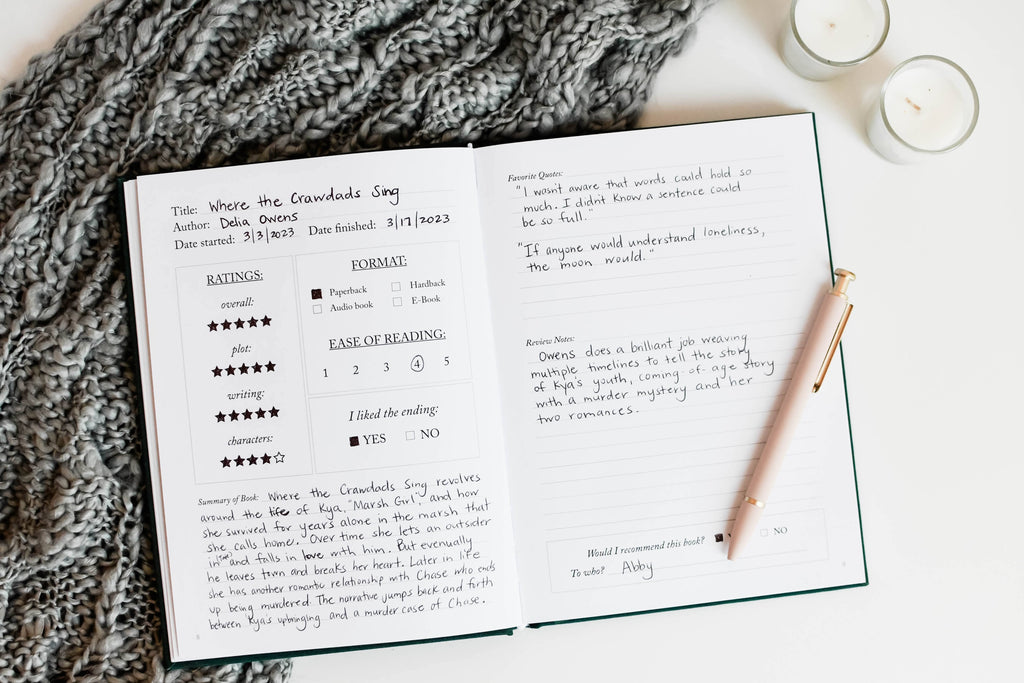 Title: Where the Crawdads Sing
Author: Delia Owens
Date started: 3/3/2023 Date finished: 3/17/2023
RATINGS:
overall:
★★★★★
plot:
★★★★★
writing:
★★★★★
characters:
★★★★☆
FORMAT:
Paperback Hardback
Audio book E-Book
EASE OF READING:
1 2 3 4 5
I liked the ending:
YES NO
Summary of Book: Where the Crawdads Sing revolves
around the life of Kya, "Marsh Girl" and how
she survived for years alone in the marsh that
she calls home. Over time she lets an outsider
in and falls in love with him. But evenually
he leaves town and breaks her heart. Later in life
she has another romantic relationship with Chase who ends
up being murdered. The narrative jumps back and forth
between Kya's upbringing and a murder case of Chase.
8
Favorite Quotes:
"I wasn't aware that words could hold so
much. I didn't know a sentence could
be so full."
"If anyone would understand loneliness,
the moon would."
Review Notes:
Owens does a brilliant job weaving
multiple timelines to tell the story
of Kya's youth, coming-of-age story
with a murder mystery and her
two romances.
Would I recommend this book? NO
To who? Abby